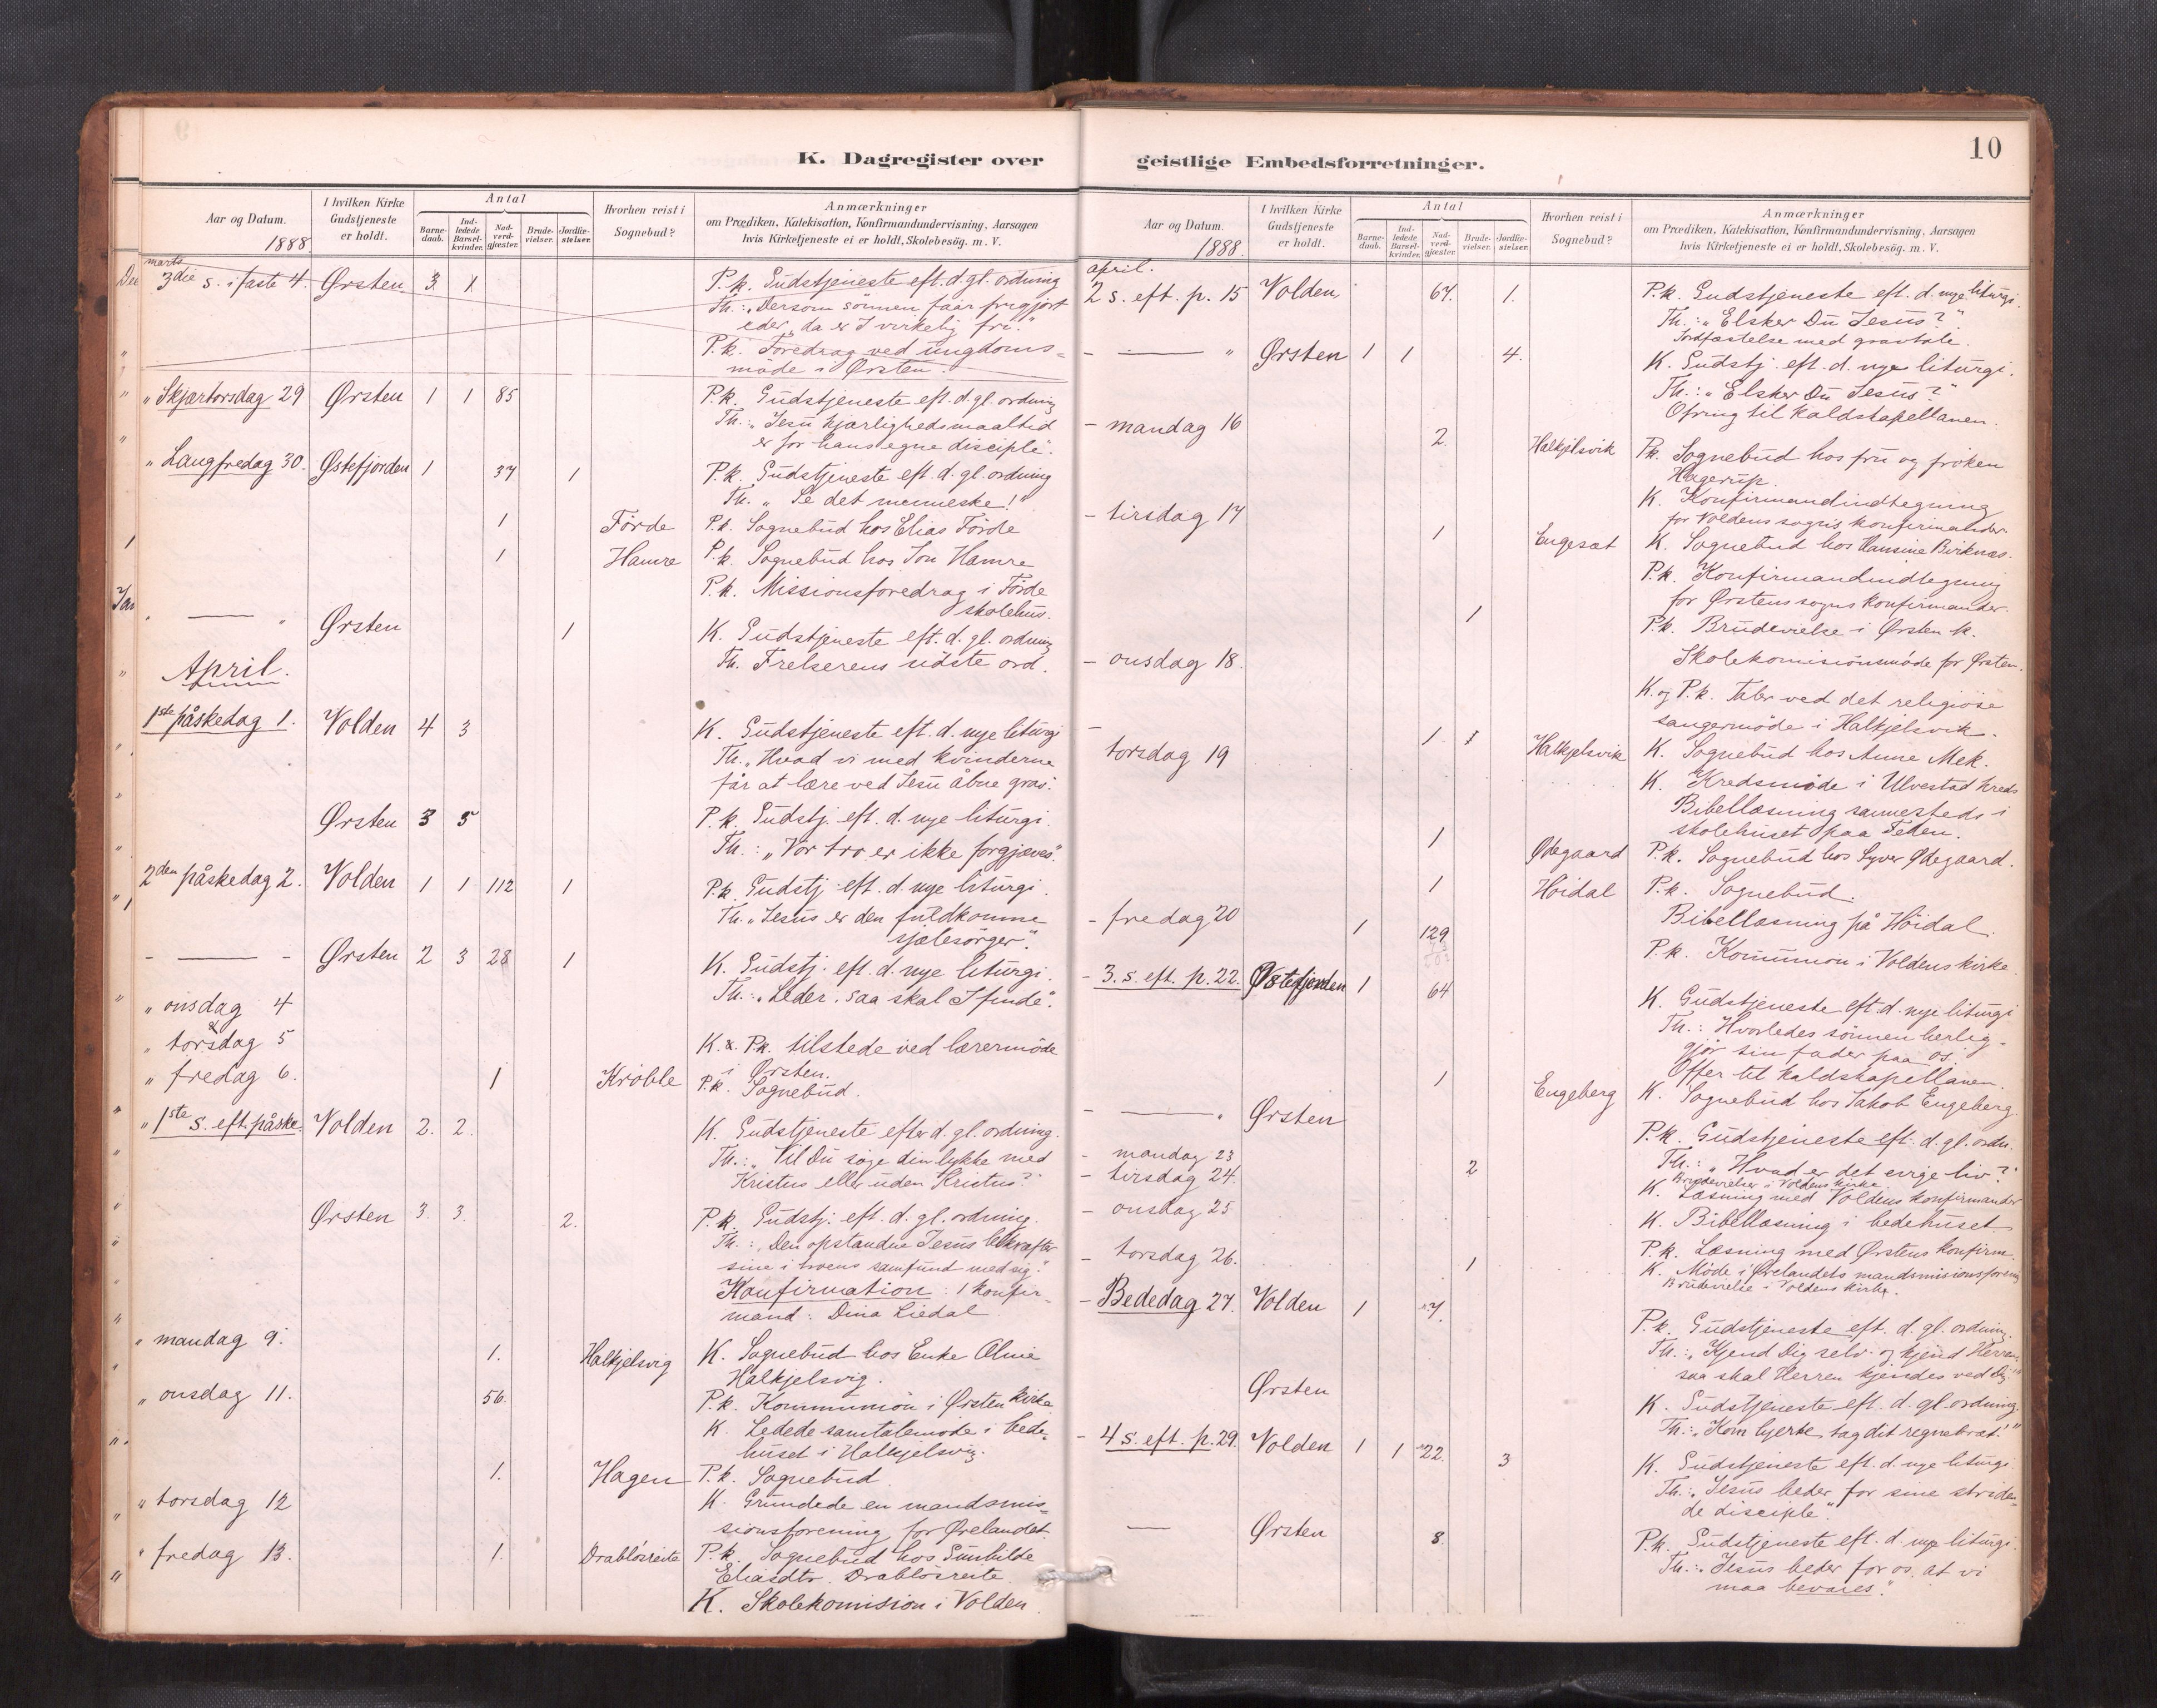 K. Dagregister over
Aar og Datum.
1888
I hvilken Kirke
Gudstjeneste
er holdt.
Antal
Barne-
daab.
Ind-
ledede
Barsel-
kvinder.
Nad-
verd-
gjæster.
Brude-
vielser.
Jordfæ-
stelser.
Hvorhen reist i
Sognebud?
Anmærkninger
om Prædiken, Katekisation, Konfirmandundervisning, Aarsagen
hvis Kirketjeneste ei er holdt, Skolebesög. m. V.
marts
3die s. i faste 4. Ørsten 3 1 P.k. Gudstjeneste eft. d. gl. ordning
Th.: „Dersom sönnen faar frigjort
eder, da er I virkelig fri."
P.k. Foredrag ved ungdoms-
möde i Ørsten.
„ Skjærtorsdag 29 Ørsten 1 1 85 P.k. Gudstjeneste eft. d. gl. ordning
Th.: „Jesu kjærlighedsmaaltid
er for hans egne disciple".
„ Langfredag 30. Østefjorden 1 37 1 P.k. Gudstjeneste eft. d. gl. ordning
Th. „Se det menneske!"
1 Förde P.k. Sognebud hos Elias Förde
1 Hamre P.k. Sognebud hos Jon Hamre
P.k. Missionsforedrag i Förde
skolehus.
" — " Ørsten 1 K. Gudstjeneste eft. d. gl. ordning
Th. Frelserens sidste ord.
April.
1ste påskedag 1. Volden 4 3 K. Gudstjeneste eft. d. nye liturgi
Th. „Hvad vi med kvinderne
får at lære ved Jesu åbne grav".
Ørsten 3 5 P.k. Gudstj. eft. d. nye liturgi.
Th.: „Vor tro er ikke forgjæves".
2den påskedag 2. Volden 1 1 112 1 P.k. Gudstj. eft. d. nye liturgi.
Th. „Jesus er den fuldkomne
sjælesörger".
- — - Ørsten 2 3 28 1 K. Gudstj. eft. d. nye liturgi.
Th.: „Leder, saa skal I finde".
„ onsdag 4
&
„ torsdag 5 K. & P.k. tilstede ved lærermöde
i Ørsten.
„ fredag 6. 1 Kröble P.k. Sognebud.
„ 1ste s. eft. påske. Volden 2. 2. K. Gudstjeneste efter d. gl. ordning.
Th.: „Vil Du söge din lykke med
Kristus eller uden Kristus?"
Ørsten 3. 3. 2. P.k. Gudstj. eft. d. gl. ordning.
Th.: „Den opstandne Jesus bekræfter
sine i troens samfund med sig."
Konfirmation: 1 konfir-
mand: Dina Liedal
„ mandag 9. 1. Halkjelsvig K. Sognebud hos Enke Oline
Halkjelsvig.
„ onsdag 11. 56. P.k. Kommunion i Ørsten kirke
K. Ledede samtalemöde i bede-
huset i Halkjelsvig.
1. Hagen P.k. Sognebud
„ torsdag 12 K. Grundede en mandsmis-
sionsforening for Ørelandet.
„ fredag 13. 1. Drablösreite P.k. Sognebud hos Gunhilde
Eliasdtr. Drablösreite.
K. Skolekomision i Volden.
10
geistlige Embedsforretninger.
Aar og Datum.
1888.
I hvilken Kirke
Gudstjeneste
er holdt.
Antal
Barne-
daab.
Ind-
ledede
Barsel-
kvinder.
Nad-
verd-
gjæster.
Brude-
vielser.
Jordfæ-
stelser.
Hvorhen reist i
Sognebud?
Anmærkninger
om Prædiken, Katekisation, Konfirmandundervisning, Aarsagen
hvis Kirketjeneste ei er holdt, Skolebesög. m. V.
april.
2 s. eft. p. 15 Volden 67. 1. P.k. Gudstjeneste eft. d. nye liturgi.
Th.: „Elsker Du Jesus?"
Jordfæstelse med gravtale.
- — " Ørsten 1 1 4. K. Gudstj. eft. d. nye liturgi.
Th.: „Elsker Du Jesus?"
Ofring til kaldskapellanen.
- mandag 16 2. Halkjelsvik P.k. Sognebud hos fru og fröken
Hagerup.
K. Konfirmandindtegning
for Voldens sogns konfirmander.
- tirsdag 17 1 Engeset K. Sognebud hos Hansine Birknæs.
P.k. Konfirmandindtegning
for Ørstens sogns konfirmander.
1 P.k. Brudevielse i Ørsten k.
- onsdag 18. Skolekomisionsmöde for Ørsten.
K. og P.k. taler ved det religiöse
sangermöde i Halkjelsvik.
- torsdag 19 1 Halkjelsvik K. Sognebud hos Anne Mek.
K. Kredsmöde i Ulvestad kreds
Bibellæsning sammesteds i
skolehuset paa Feten.
1 Ødegaard P.k. Sognebud hos Syver Ødegaard.
1 Höidal P.k. Sognebud.
Bibellæsning på Höidal.
- fredag 20 1 129 P.k. Kommunion i Voldens kirke.
- 3. s. eft. p. 22. Østefjorden 1 64 K. Gudstjeneste eft. d. nye liturgi
Th.: Hvorledes sönnen herlig-
gjör sin fader paa os.
Offer til kaldskapellanen.
1 Engeberg K. Sognebud hos Jakob Engeberg.
- — " Ørsten P.k. Gudstjeneste eft. d. gl. ordn.
Th.: „Hvad er det evige liv?"
- mandag 23 2 Brudevielser i Voldens kirke.
- tirsdag 24. K. Læsning med Voldens konfirmander
- onsdag 25 K. Bibellæsning i bedehuset
P.k. Læsning med Ørstens konfirm.
- torsdag 26. K. Möde i Ørelandets mandsmisionsforening
1 Brudevielse i Voldens kirke.
- Bededag 27. Volden 1 7. P.k. Gudstjeneste eft. d. gl. ordning.
Th.: „Kjend Dig selv og kjend Herren,
saa skal Herren kjendes ved Dig."
Ørsten K. Gudstjeneste eft. d. gl. ordning.
Th.: „Kom hjerte, tag dit regnebræt!"
- 4 s. eft. p. 29. Volden 1 1 22. 3 K. Gudstjeneste eft. d. nye liturgi.
Th.: „Jesus beder for sine striden-
de disciple".
— Ørsten 8. P.k. Gudstjeneste eft. d. nye liturgi.
Th.: „Jesus beder for os, at vi
maa bevares."